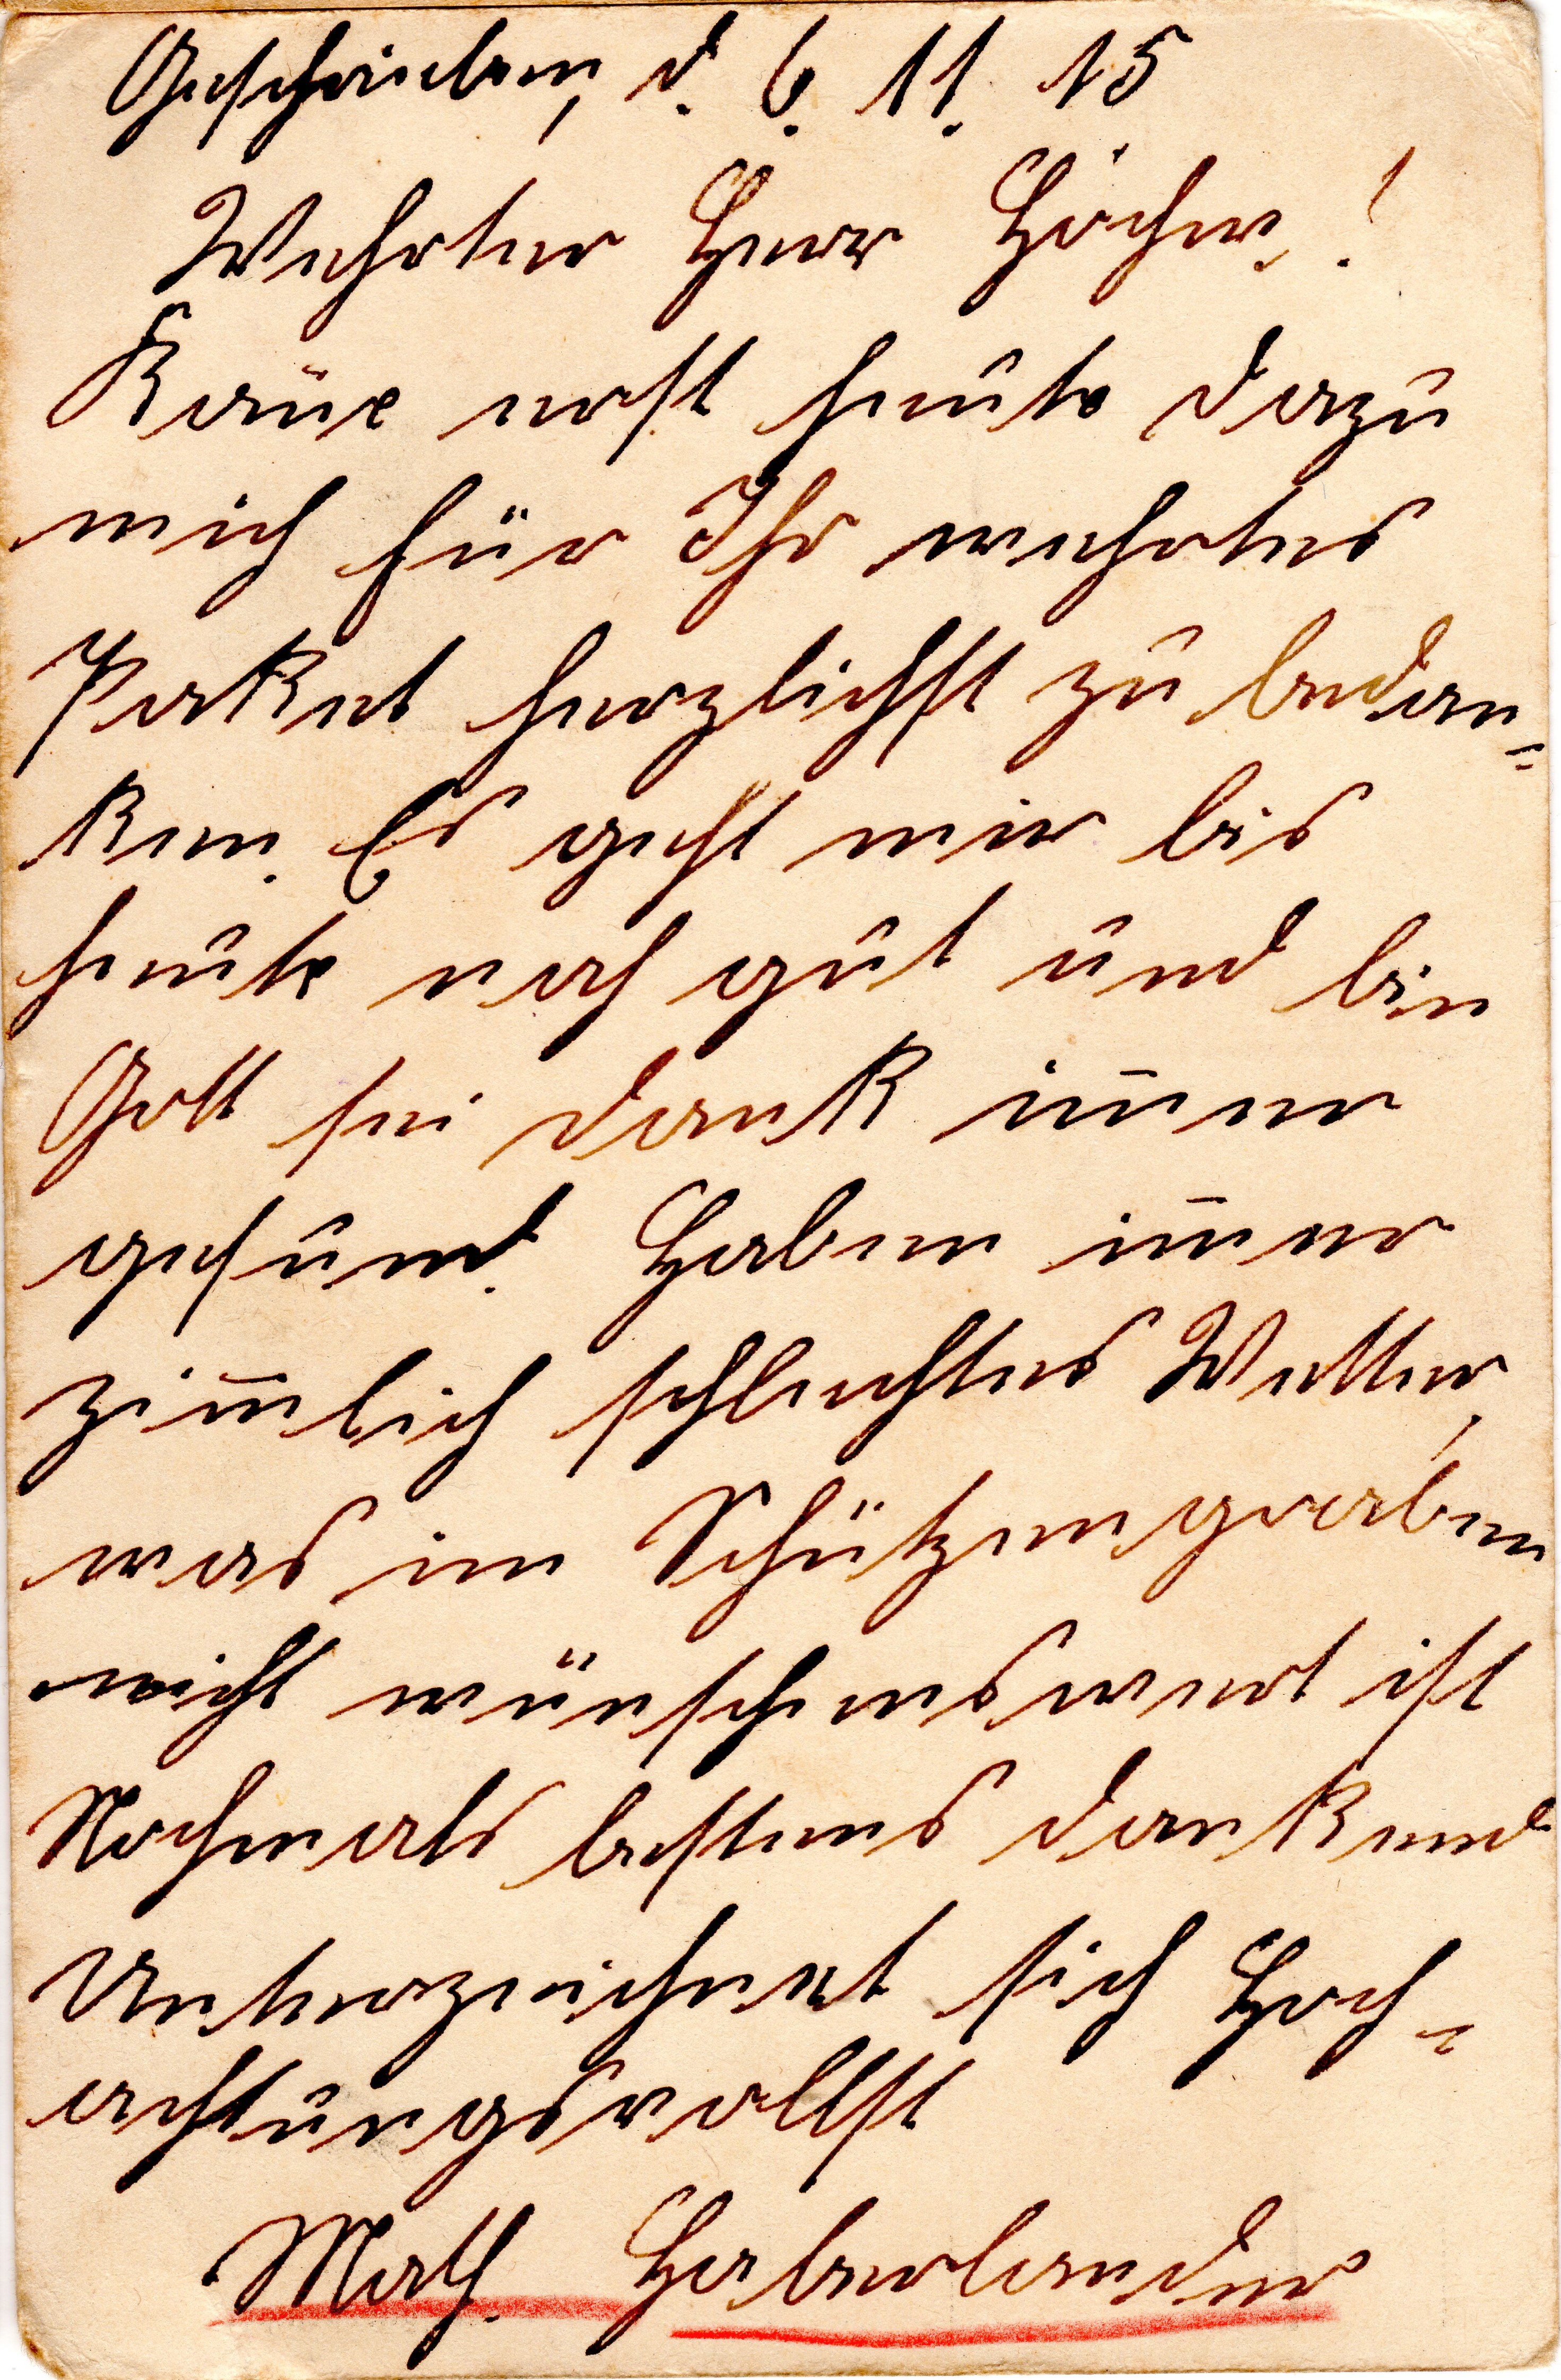 Geschrieben, d. 6. 11. 15
Wehrter Herr Höcher!
Kome erst heute dazu
mich für Ihr wehrtes
Paket herzlichst zu bedan=
ken. Es geht mir bis
heute noch gut und bin
Gott sei dank im̅er
gesund. Haben im̅er
zim̅lich schlechtes Wetter,
was im Schützengraben
nicht wünschenswert ist
Nochmals bestens dankend
Unterzeichnet sich Hoch-
achtungsvollst
Math. Haberlander